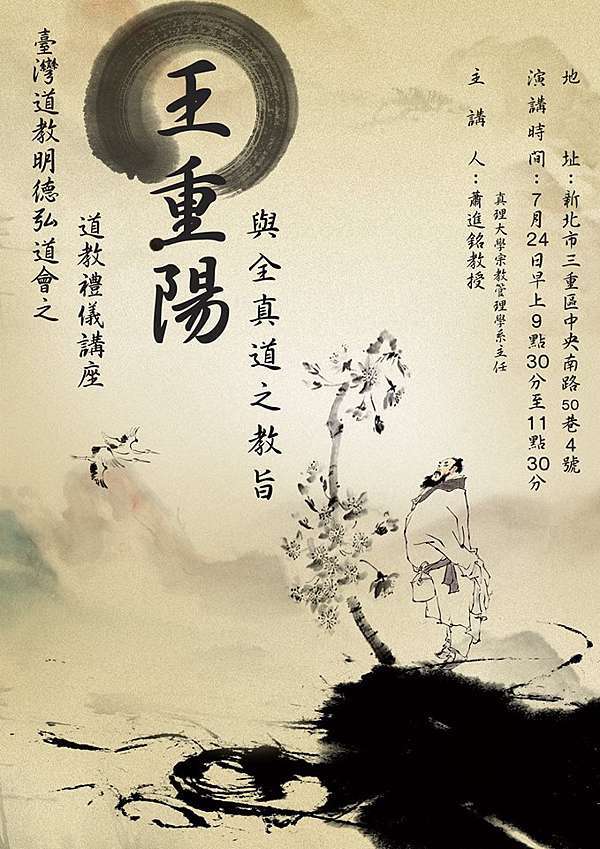 地址：新北市三重區中央南路50巷4號
演講時間：7月24日早上9點30分至11點30分
真理大學宗教管理學系主任
主講人：蕭進銘教授
與全真道之教旨
王重陽
道教禮儀講座
臺灣道教明德弘道會之